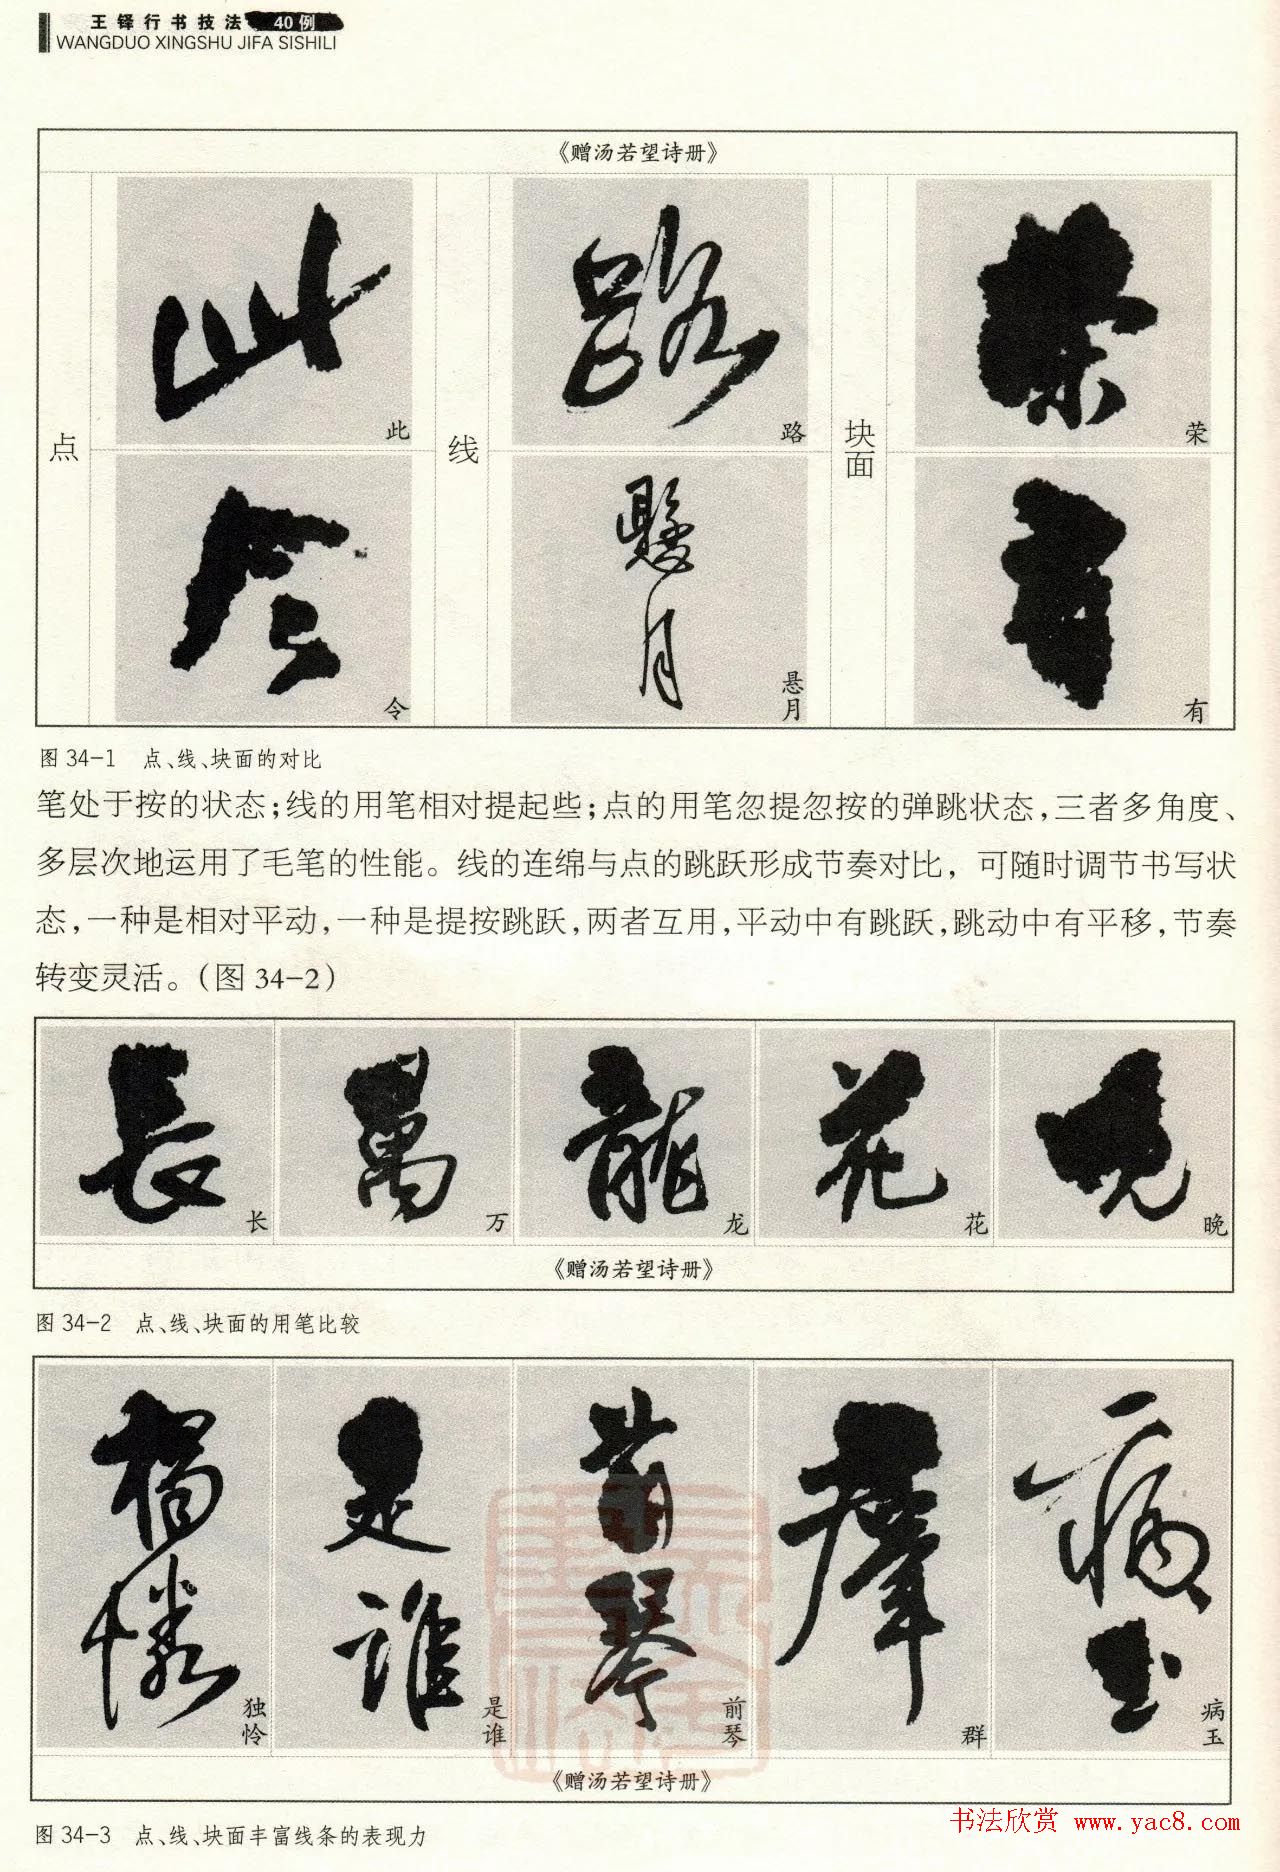 王铎行书技法 40例
WANGDUO XINGSHU JIFA SISHILI
《赠汤若望诗册》
点
此
令
线
路
悬月
块面
荣
有
图 34-1 点、线、块面的对比
笔处于按的状态;线的用笔相对提起些;点的用笔忽提忽按的弹跳状态,三者多角度、
多层次地运用了毛笔的性能。线的连绵与点的跳跃形成节奏对比,可随时调节书写状
态,一种是相对平动,一种是提按跳跃,两者互用,平动中有跳跃,跳动中有平移,节奏
转变灵活。(图 34-2)
长
万
龙
花
晚
《赠汤若望诗册》
图 34-2 点、线、块面的用笔比较
独怜
是谁
前琴
群
病玉
《赠汤若望诗册》
图 34-3 点、线、块面丰富线条的表现力
书法欣赏 www.yac8.com